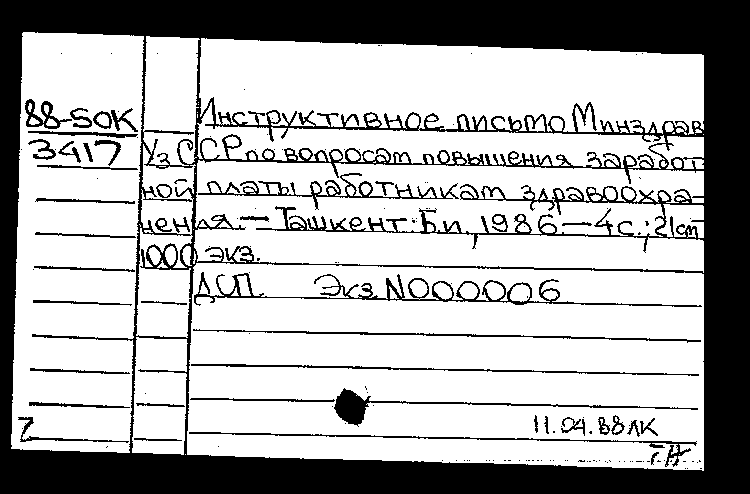 88-5ОК Инструктивное письмо Минздрав
3417 УзССР по вопросам повышения заработ-
ной платы работникам здравоохра-
нения. — Ташкент: Б.и., 1986. — 4с.; 21cm
1000 экз.
ДСП. Экз N000006
11.04.88 ЛК